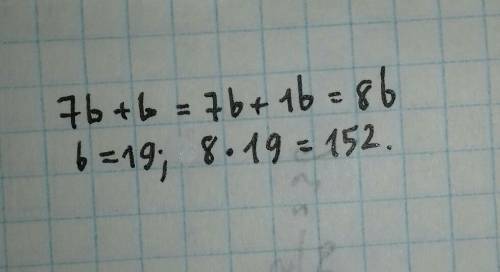 7b + b = 7b + 1b = 8b
b = 19; 8 · 19 = 152.